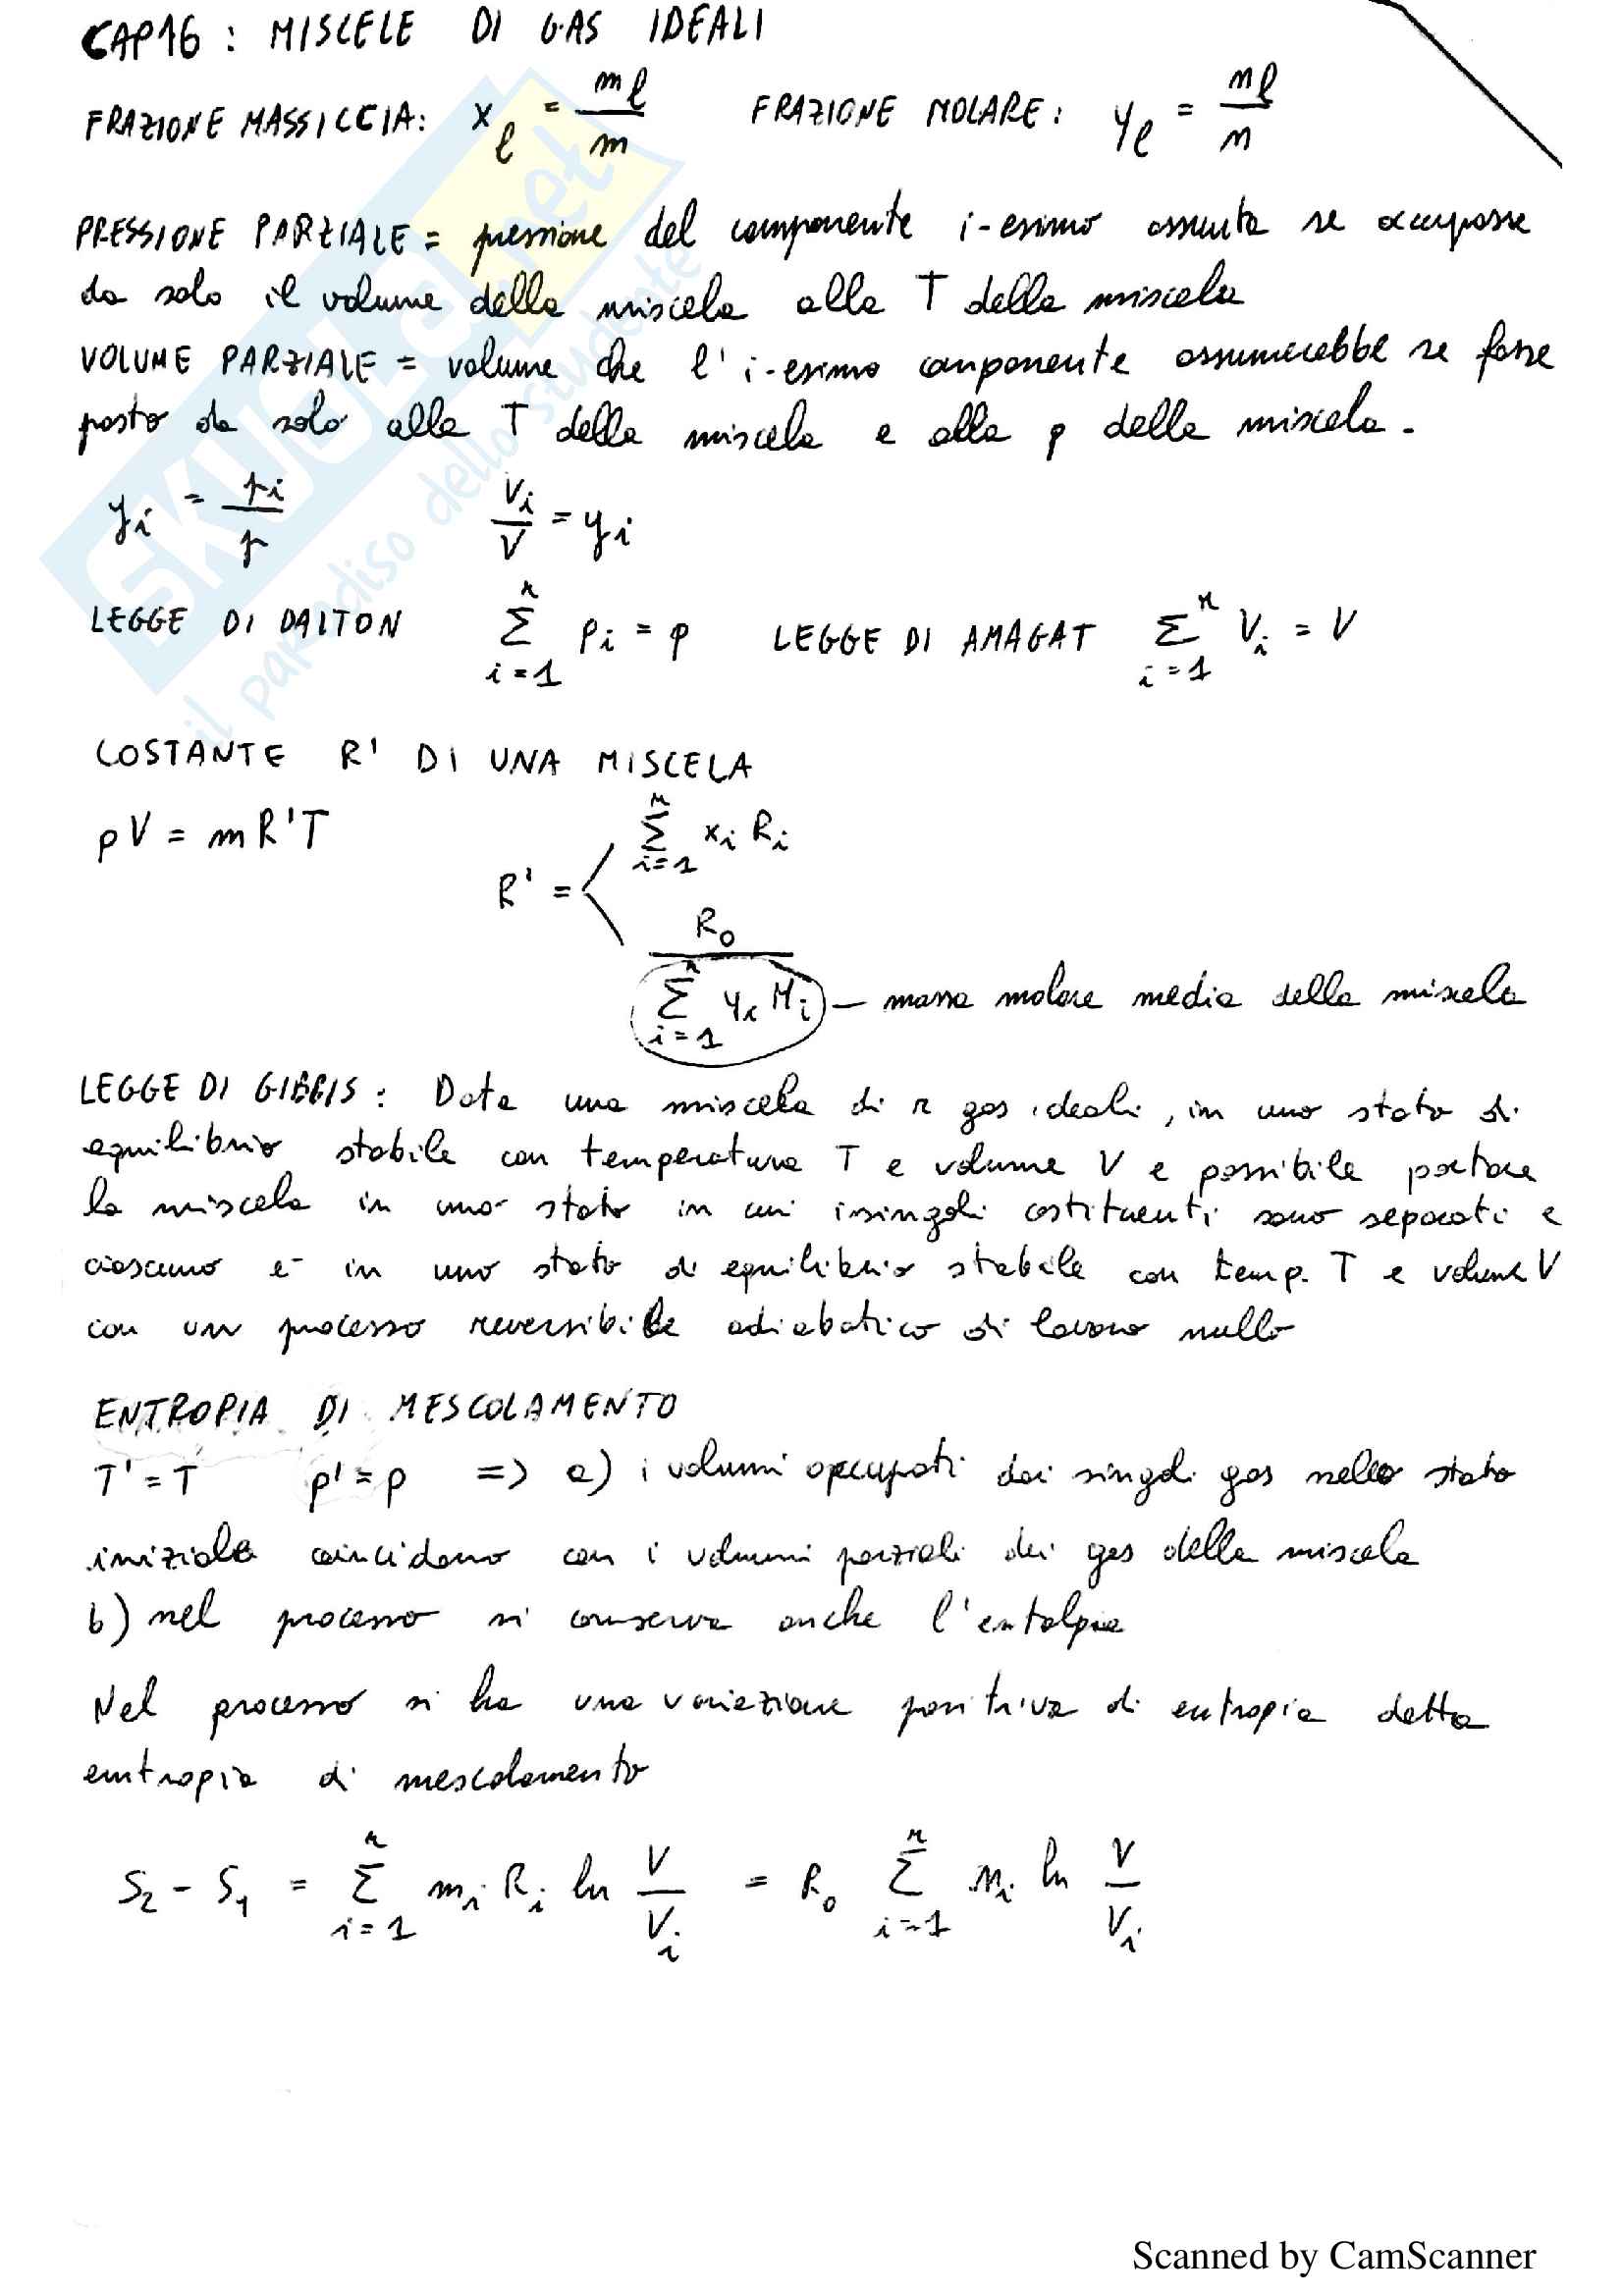 CAP16 : MISCELE DI GAS IDEALI
FRAZIONE MASSICCIA: x_l = m_l / m FRAZIONE MOLARE: y_l = n_l / n
PRESSIONE PARZIALE = pressione del componente i-esimo assunta se occupasse
da solo il volume della miscela alla T della miscela
VOLUME PARZIALE = volume che l'i-esimo componente assumerebbe se fosse
posto da solo alla T della miscela e alla p della miscela.
y_i = p_i / p V_i / V = y_i
LEGGE DI DALTON Σ_{i=1}^{r} p_i = p LEGGE DI AMAGAT Σ_{i=1}^{r} V_i = V
COSTANTE R' DI UNA MISCELA
pV = mR'T
R' = < Σ_{i=1}^{r} x_i R_i
R_0 / Σ_{i=1}^{r} y_i M_i — massa molare media della miscela
LEGGE DI GIBBS: Data una miscela di r gas ideali, in uno stato di
equilibrio stabile con temperatura T e volume V e possibile portare
la miscela in uno stato in cui i singoli costituenti sono separati e
ciascuno è in uno stato di equilibrio stabile con temp. T e volume V
con un processo reversibile adiabatico di lavoro nullo
ENTROPIA DI MESCOLAMENTO
T' = T p' = p => a) i volumi occupati dai singoli gas nello stato
iniziale coincidono con i volumi parziali dei gas della miscela
b) nel processo si conserva anche l'entalpia
Nel processo si ha una variazione positiva di entropia detta
entropia di mescolamento
S_2 - S_1 = Σ_{i=1}^{r} m_i R_i ln V / V_i = R_0 Σ_{i=1}^{r} n_i ln V / V_i
SKUOLA.net
il paradiso dello studente
Scanned by CamScanner